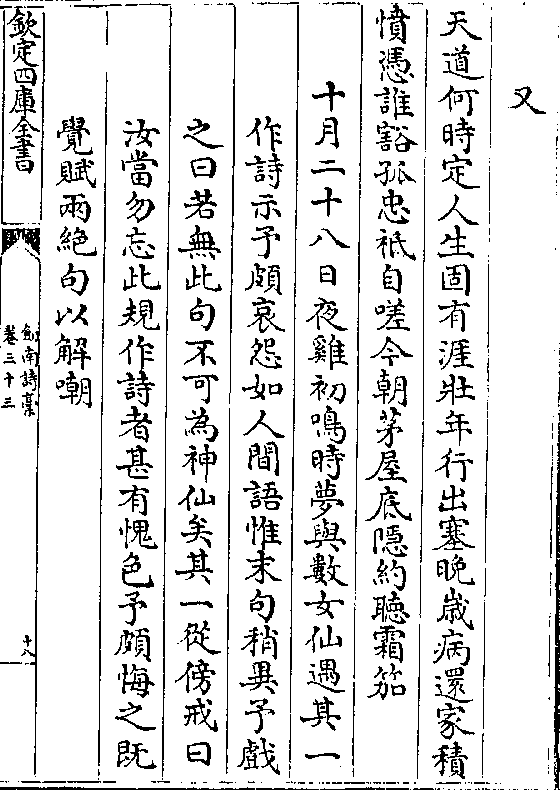 又
天道何時定人生固有涯壯年行出塞晚歲病還家積
憤憑誰豁孤忠祗自嗟今朝茅屋底隱約聽霜笳
十月二十八日夜雞初鳴時夢與數女仙遇其一
作詩示予頗哀怨如人間語惟末句稍異予戲
之曰若無此句不可為神仙矣其一從傍戒曰
汝當勿忘此規作詩者甚有愧色予頗悔之既
覺賦兩絕句以解嘲
欽定四庫全書
劍南詩稾
卷三十三
十八